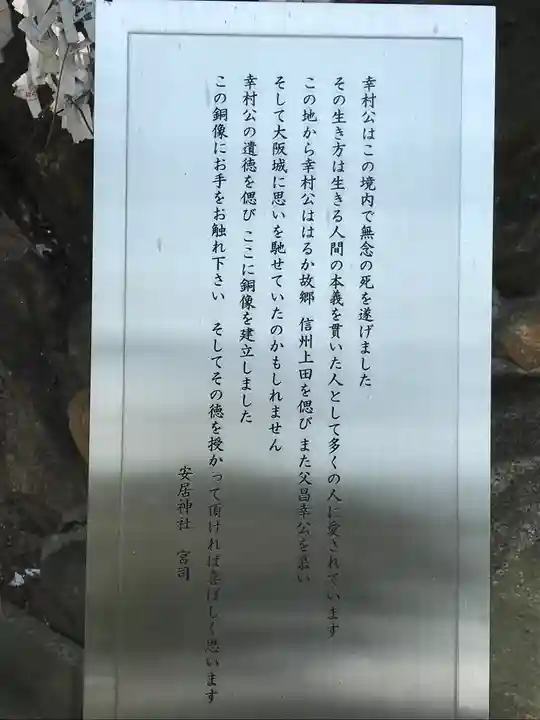 幸村公はこの境内で無念の死を遂げました
その生き方は生きる人間の本義を貫いた人として多くの人に愛されています
この地から幸村公ははるか故郷 信州上田を偲び また父昌幸公を慕い
そして大阪城に思いを馳せていたのかもしれません
幸村公の遺徳を偲び ここに銅像を建立しました
この銅像にお手をお触れ下さい そしてその徳を授かって頂ければ喜ばしく思います
安居神社 宮司